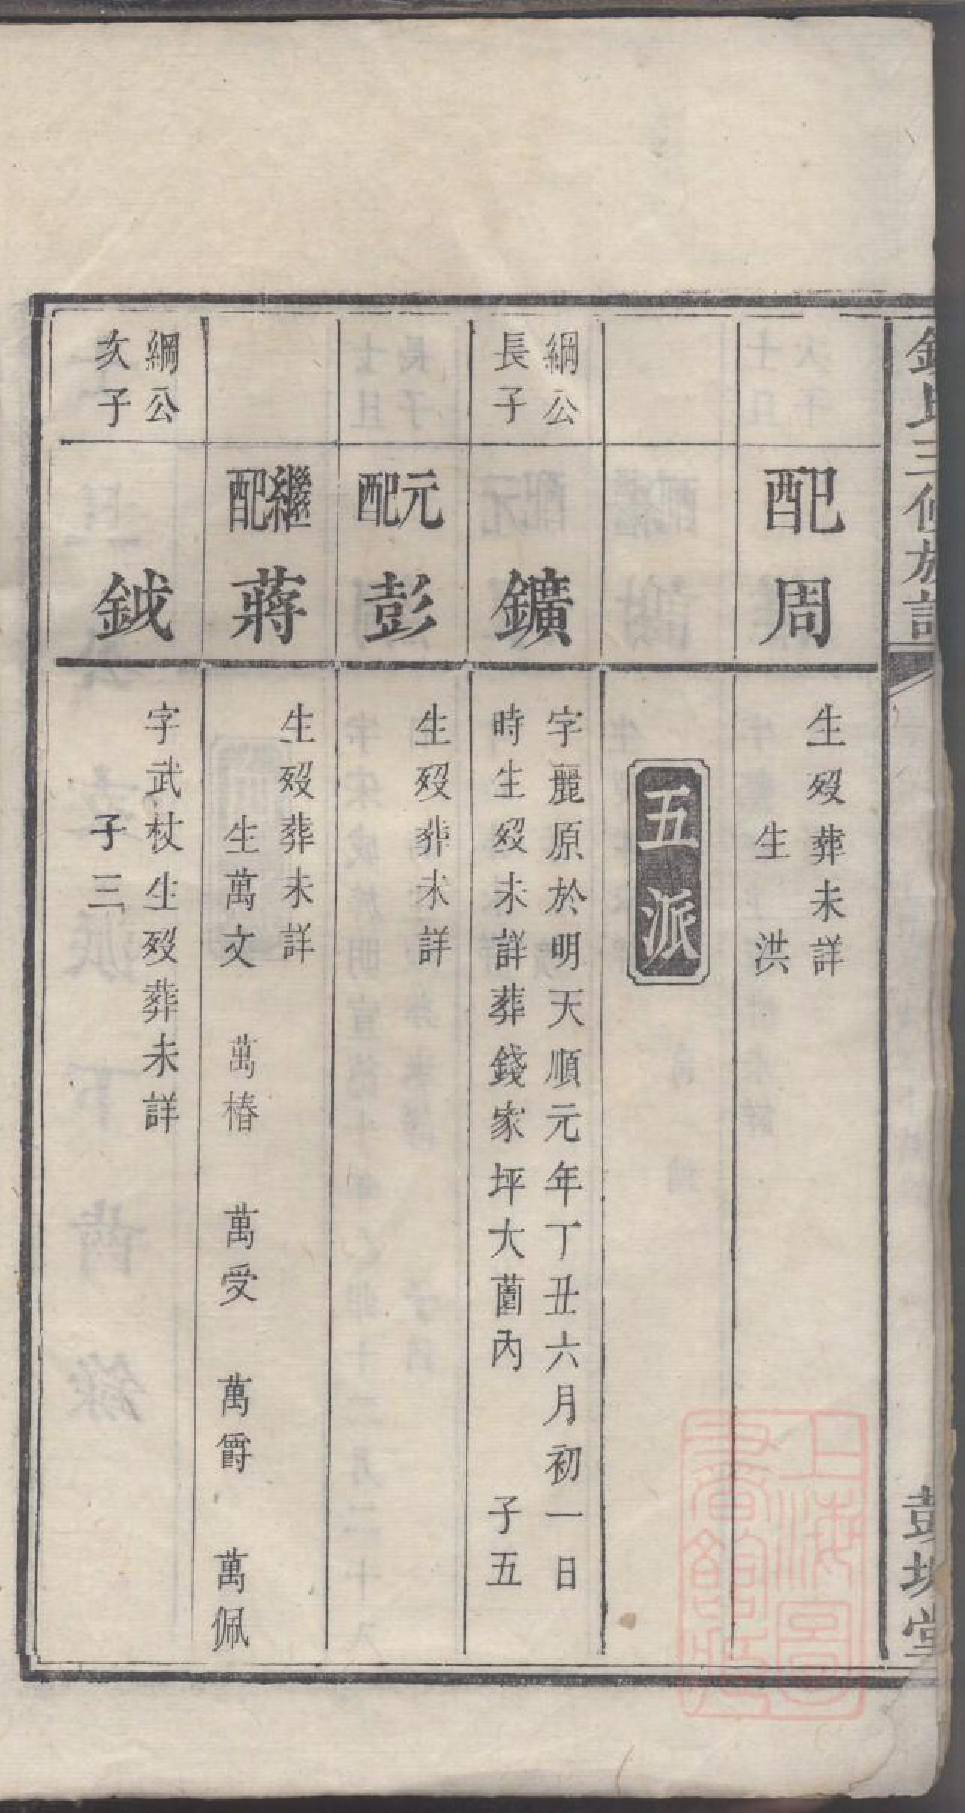 配周
生歿葬未詳
生 洪
五派
綱公
長子
鑛
字麗原於明天順元年丁丑六月初一日
時生歿未詳葬錢家坪大薗內 子五
元配彭
生歿葬未詳
繼配蔣
生歿葬未詳
生萬文 萬椿 萬受 萬爵 萬佩
綱公
次子
鉞
字武杖生歿葬未詳
子三